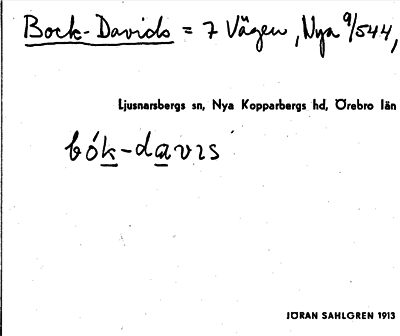 Bock-Davids = 7 Vägen, Nya 9/544,
Ljusnarsbergs sn, Nya Kopparbergs hd, Örebro län
bók-davıs
JÖRAN SAHLGREN 1913